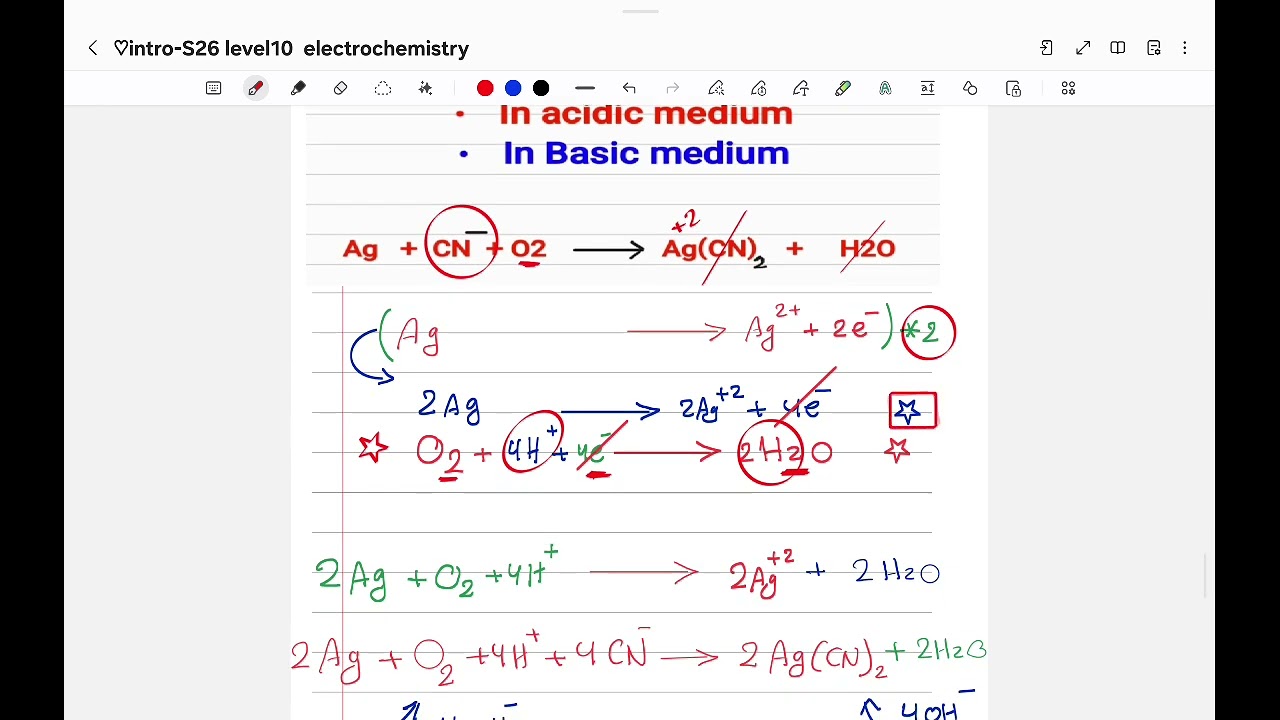 ♡intro-S26 level10 electrochemistry
• In acidic medium
• In Basic medium
+2
Ag + CN⁻ + O2 ⟶ Ag(CN)₂ + H2O
(Ag ⟶ Ag²⁺ + 2e⁻) *2
2Ag ⟶ 2Ag⁺² + 4e⁻
O₂ + 4H⁺ + 4e⁻ ⟶ 2H₂O
2Ag + O₂ + 4H⁺ ⟶ 2Ag⁺² + 2H2O
2Ag + O₂ + 4H⁺ + 4CN⁻ ⟶ 2Ag(CN)₂ + 2H2O
4OH⁻